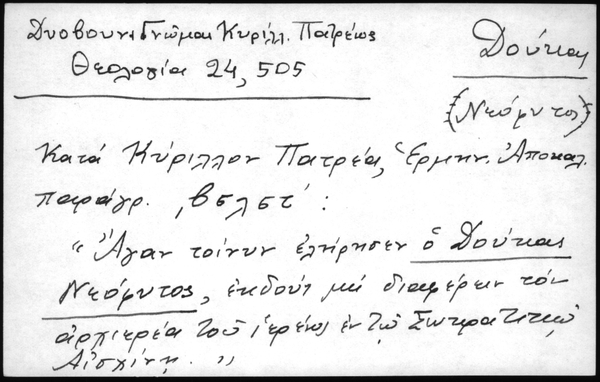 Δυοβουν. Γνῶμαι Κυρίλλ. Πατρέως
Θεολογία 24, 505
Δούκας
(Νεόφυτος)
Κατά Κύριλλον Πατρέα, Ἑρμην. Ἀποκαλ.
παράγρ. ͵βςλςτ΄ :
"Ἄγαν τοίνυν ἐλήρησεν ὁ Δούκας
Νεόφυτος, ἐκδούς μή διαφέρειν τόν
ἀρχιερέα τοῦ ἱερέως ἐν τῷ Σωκρατικῷ
Αἰσχίνῃ."